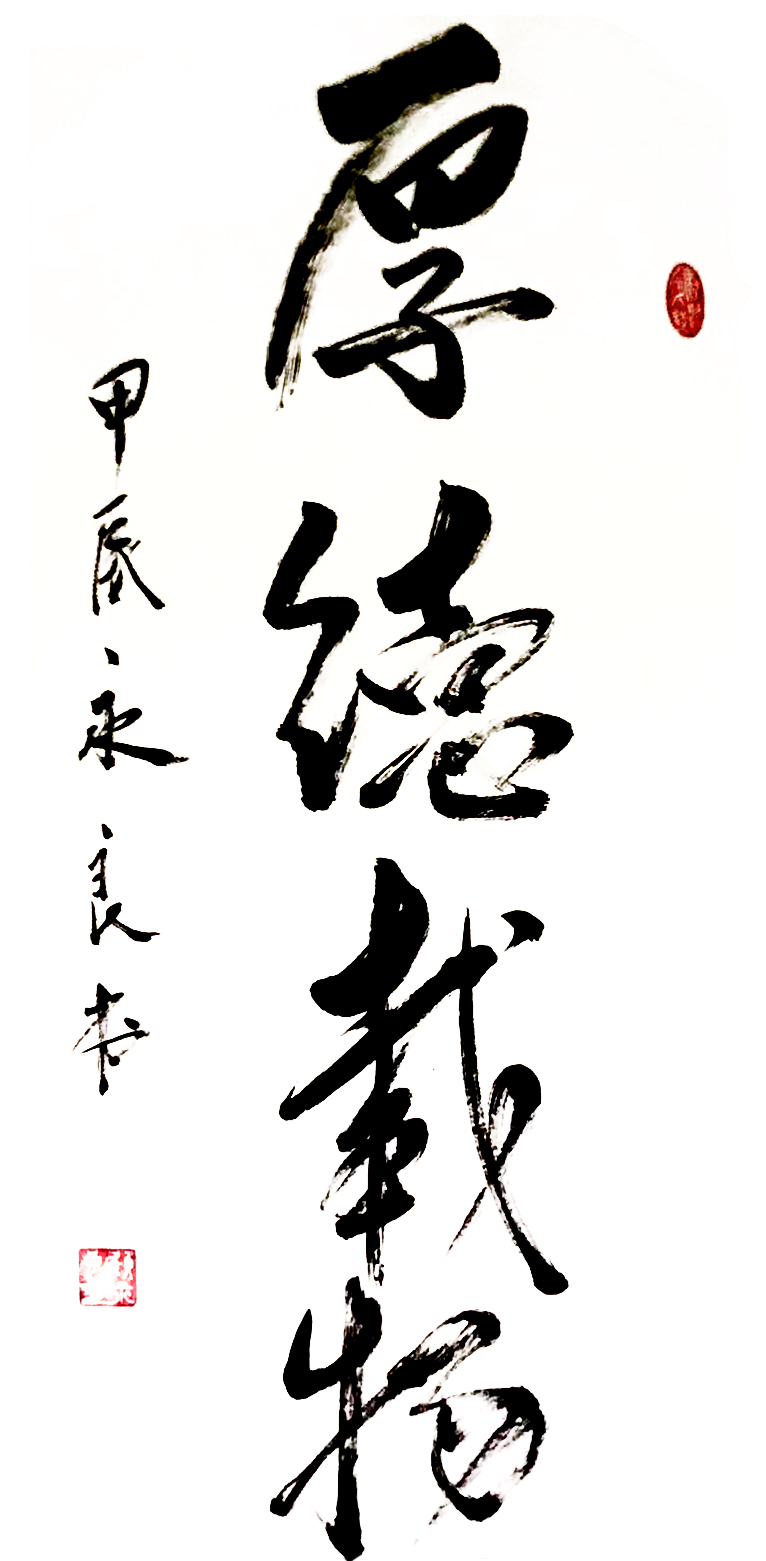 厚德載物
甲辰永良书